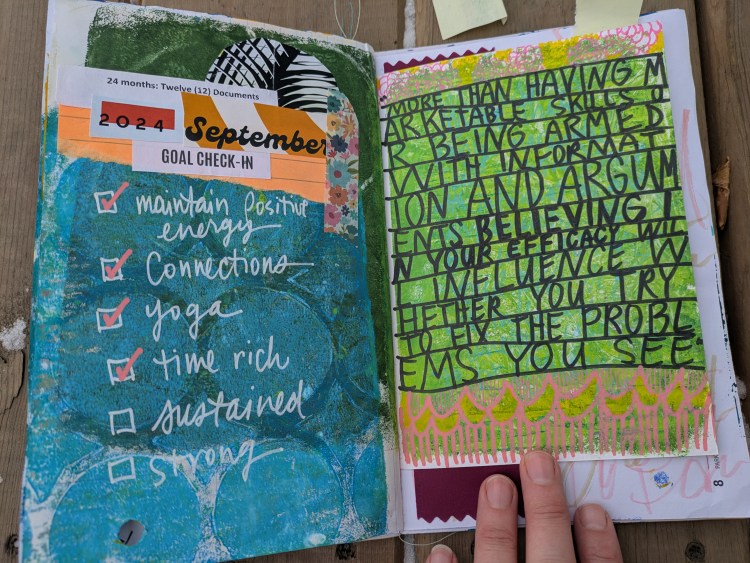 24 months: Twelve (12) Documents
2024
September
GOAL CHECK-IN
maintain positive
energy
Connections
yoga
time rich
sustained
strong
"MORE THAN HAVING M
ARKETABLE SKILLS O
R BEING ARMED
WITH INFORMAT
ION AND ARGUM
ENTS BELIEVING I
N YOUR EFFICACY WILL
INFLUENCE W
HETHER YOU TRY
TO FIX THE PROBL
EMS YOU SEE"
8